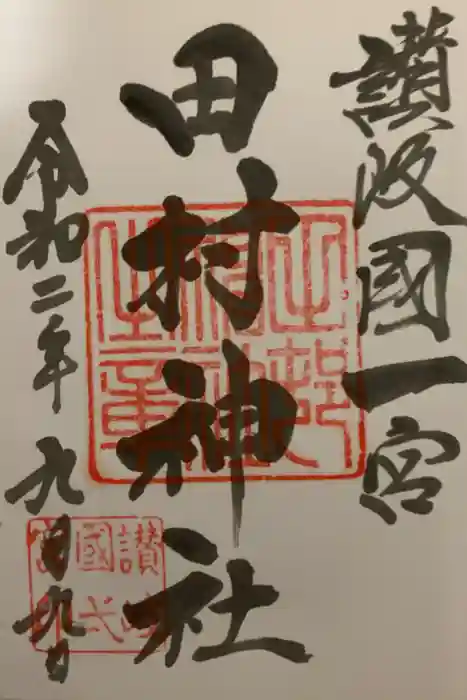 讃岐國一宮
田村神社
令和二年九月九日